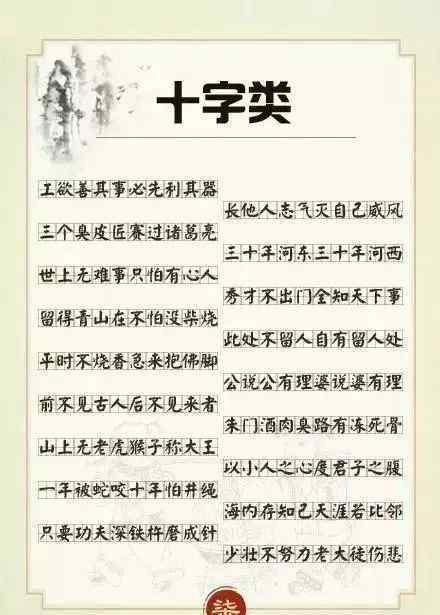 十字类
工欲善其事必先利其器
三个臭皮匠赛过诸葛亮
世上无难事只怕有心人
留得青山在不怕没柴烧
平时不烧香急来抱佛脚
前不见古人后不见来者
山上无老虎猴子称大王
一年被蛇咬十年怕井绳
只要功夫深铁杵磨成针
长他人志气灭自己威风
三十年河东三十年河西
秀才不出门全知天下事
此处不留人自有留人处
公说公有理婆说婆有理
朱门酒肉臭路有冻死骨
以小人之心度君子之腹
海内存知己天涯若比邻
少壮不努力老大徒伤悲
柒